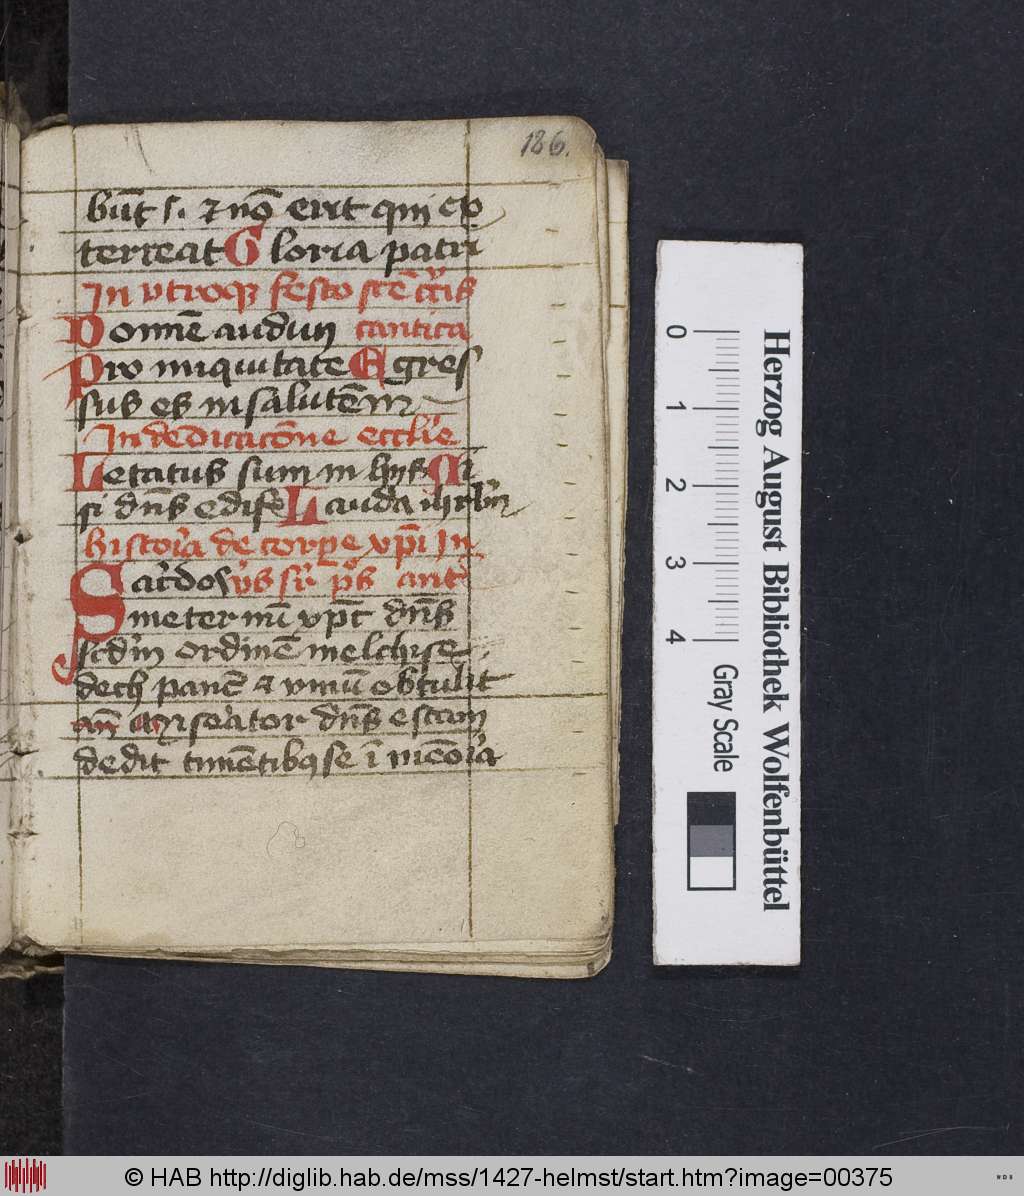 186.
bu̅t s. ⁊ no̅ erit qui ex
terreat Gloria patri
In vtroqꝫ festo sc̅e cͬcis
Domine̅ audiui cantica
Pro iniquitate Egres
sus es in salute̅
In dedicac̅one eccl̅ie
Letatus sum in hijs Ni
si dn̅s edifi Lauda ihrlm̅
historia de corp̅e xp̅i In
Sacerdos vs sr̅ ps̅ ant
in eternu̅ xp̅c dn̅s
scd̅m ordine̅ melchise
dech pane̅ et vinu̅ obtulit
an̅ Miserator dn̅s escam
dedit time̅tibus se i̅ me̅oria
Herzog August Bibliothek Wolfenbüttel
0 1 2 3 4 Gray Scale
© HAB http://diglib.hab.de/mss/1427-helmst/start.htm?image=00375